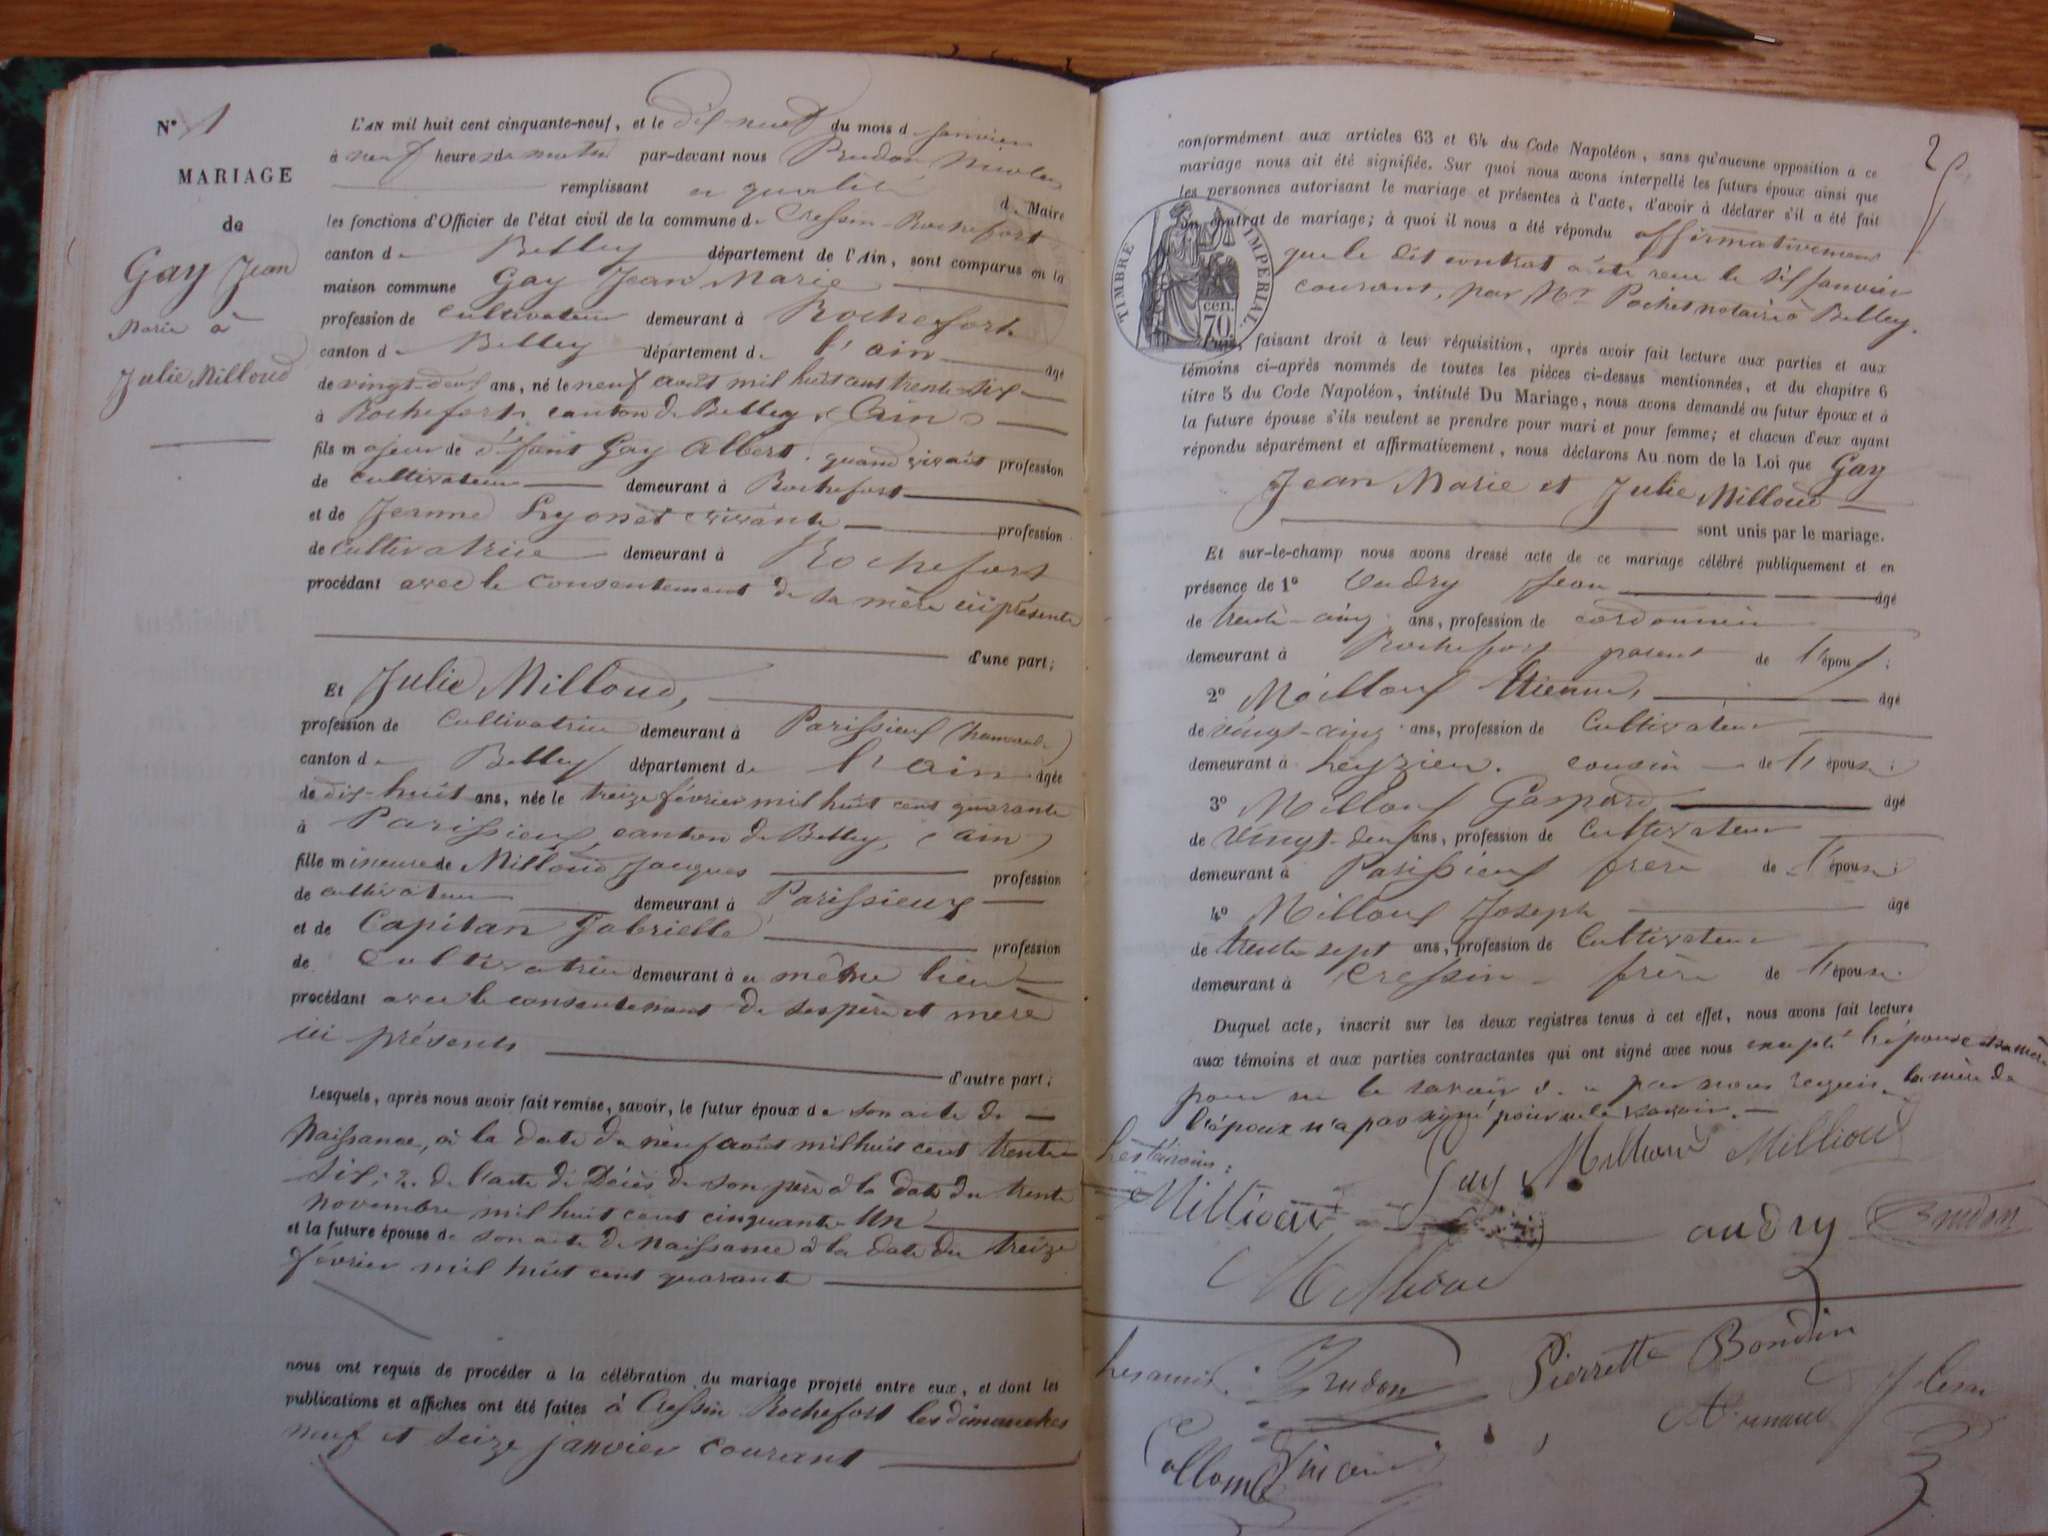 N° 1
MARIAGE
de
Gay Jean
Marie à
Julie Milloud
L'AN mil huit cent cinquante-neuf, et le dix-neuf du mois d janvier
à neuf heures du matin par-devant nous Prudon Nicolas
remplissant en qualité d. Maire
les fonctions d'Officier de l'état civil de la commune de Cressin-Rochefort
canton de Belley département de l'Ain, sont comparus en la
maison commune Gay Jean Marie
profession de cultivateur demeurant à Rochefort
canton de Belley département de l'ain âgé
de vingt-deux ans, né le neuf août mil huit cent trente-six
à Rochefort, canton de Belley (Ain)
fils majeur de défunt Gay Albert, quand vivait profession
de cultivateur demeurant à Rochefort
et de Jeanne vivante profession
de Cultivatrice demeurant à Rochefort
procédant avec le consentement de sa mère ici présente
d'une part;
Et Julie Milloud,
profession de Cultivatrice demeurant à Parissieux
canton de Belley département de l'ain âgée
de dix-huit ans, née le treize février mil huit cent quarante
à Parissieux, canton de Belley, (ain)
fille mineure de Milloud Jacques profession
de cultivateur demeurant à Parissieux
et de Capitan Gabrielle profession
de Cultivatrice demeurant à même lieu
procédant avec le consentement de ses père et mère
ici présents
d'autre part;
Lesquels, après nous avoir fait remise, savoir, le futur époux de son acte de
Naissance, à la date du neuf août mil huit cent trente
six; 2° de l'acte de Décès de son père à la date du trente
novembre mil huit cent cinquante-Un
et la future épouse de son acte de Naissance à la date du treize
février mil huit cent quarante
nous ont requis de procéder à la célébration du mariage projeté entre eux, et dont les
publications et affiches ont été faites à Cressin Rochefort les dimanches
neuf et seize janvier courant
2
conformément aux articles 63 et 64 du Code Napoléon, sans qu'aucune opposition a ce
mariage nous ait été signifiée. Sur quoi nous avons interpellé les futurs époux ainsi que
les personnes autorisant le mariage et présentes à l'acte, d'avoir à déclarer s'il a été fait
un contrat de mariage; à quoi il nous a été répondu affirmativement
que le dit contrat a été reçu le six janvier
courant, par Me Pochet notaire à Belley.
TIMBRE IMPERIAL.
70 cen.
faisant droit à leur réquisition, après avoir fait lecture aux parties et aux
témoins ci-après nommés de toutes les pièces ci-dessus mentionnées, et du chapitre 6
titre 5 du Code Napoléon, intitulé Du Mariage, nous avons demandé au futur époux et à
la future épouse s'ils veulent se prendre pour mari et pour femme; et chacun d'eux ayant
répondu séparément et affirmativement, nous déclarons Au nom de la Loi que Gay
Jean Marie et Julie Milloud
sont unis par le mariage.
Et sur-le-champ nous avons dressé acte de ce mariage célébré publiquement et en
présence de 1° Audry Jean âgé
de trente-cinq ans, profession de cordonnier
demeurant à Rochefort parent de l'époux;
2° Millouf Etienne, âgé
de vingt-cinq ans, profession de Cultivateur
demeurant à cousin de l'épouse;
3° Millouf Gaspard âgé
de Vingt-deux ans, profession de Cultivateur
demeurant à Parissieux frère de l'épouse;
4° Millouf Joseph âgé
de trente sept ans, profession de Cultivateur
demeurant à Cressin frère de l'épouse.
Duquel acte, inscrit sur les deux registres tenus à cet effet, nous avons fait lecture
aux témoins et aux parties contractantes qui ont signé avec nous excepté l'épouse et sa mère
pour ne le savoir de ce par nous requis, la mère de
l'époux n'a pas signé pour ne le savoir.
Les témoins:
Gay Milliou Milliou
Milliou audry Prudon
Milliou
Les amis: Prudon Pierrette Bondin
Collomb